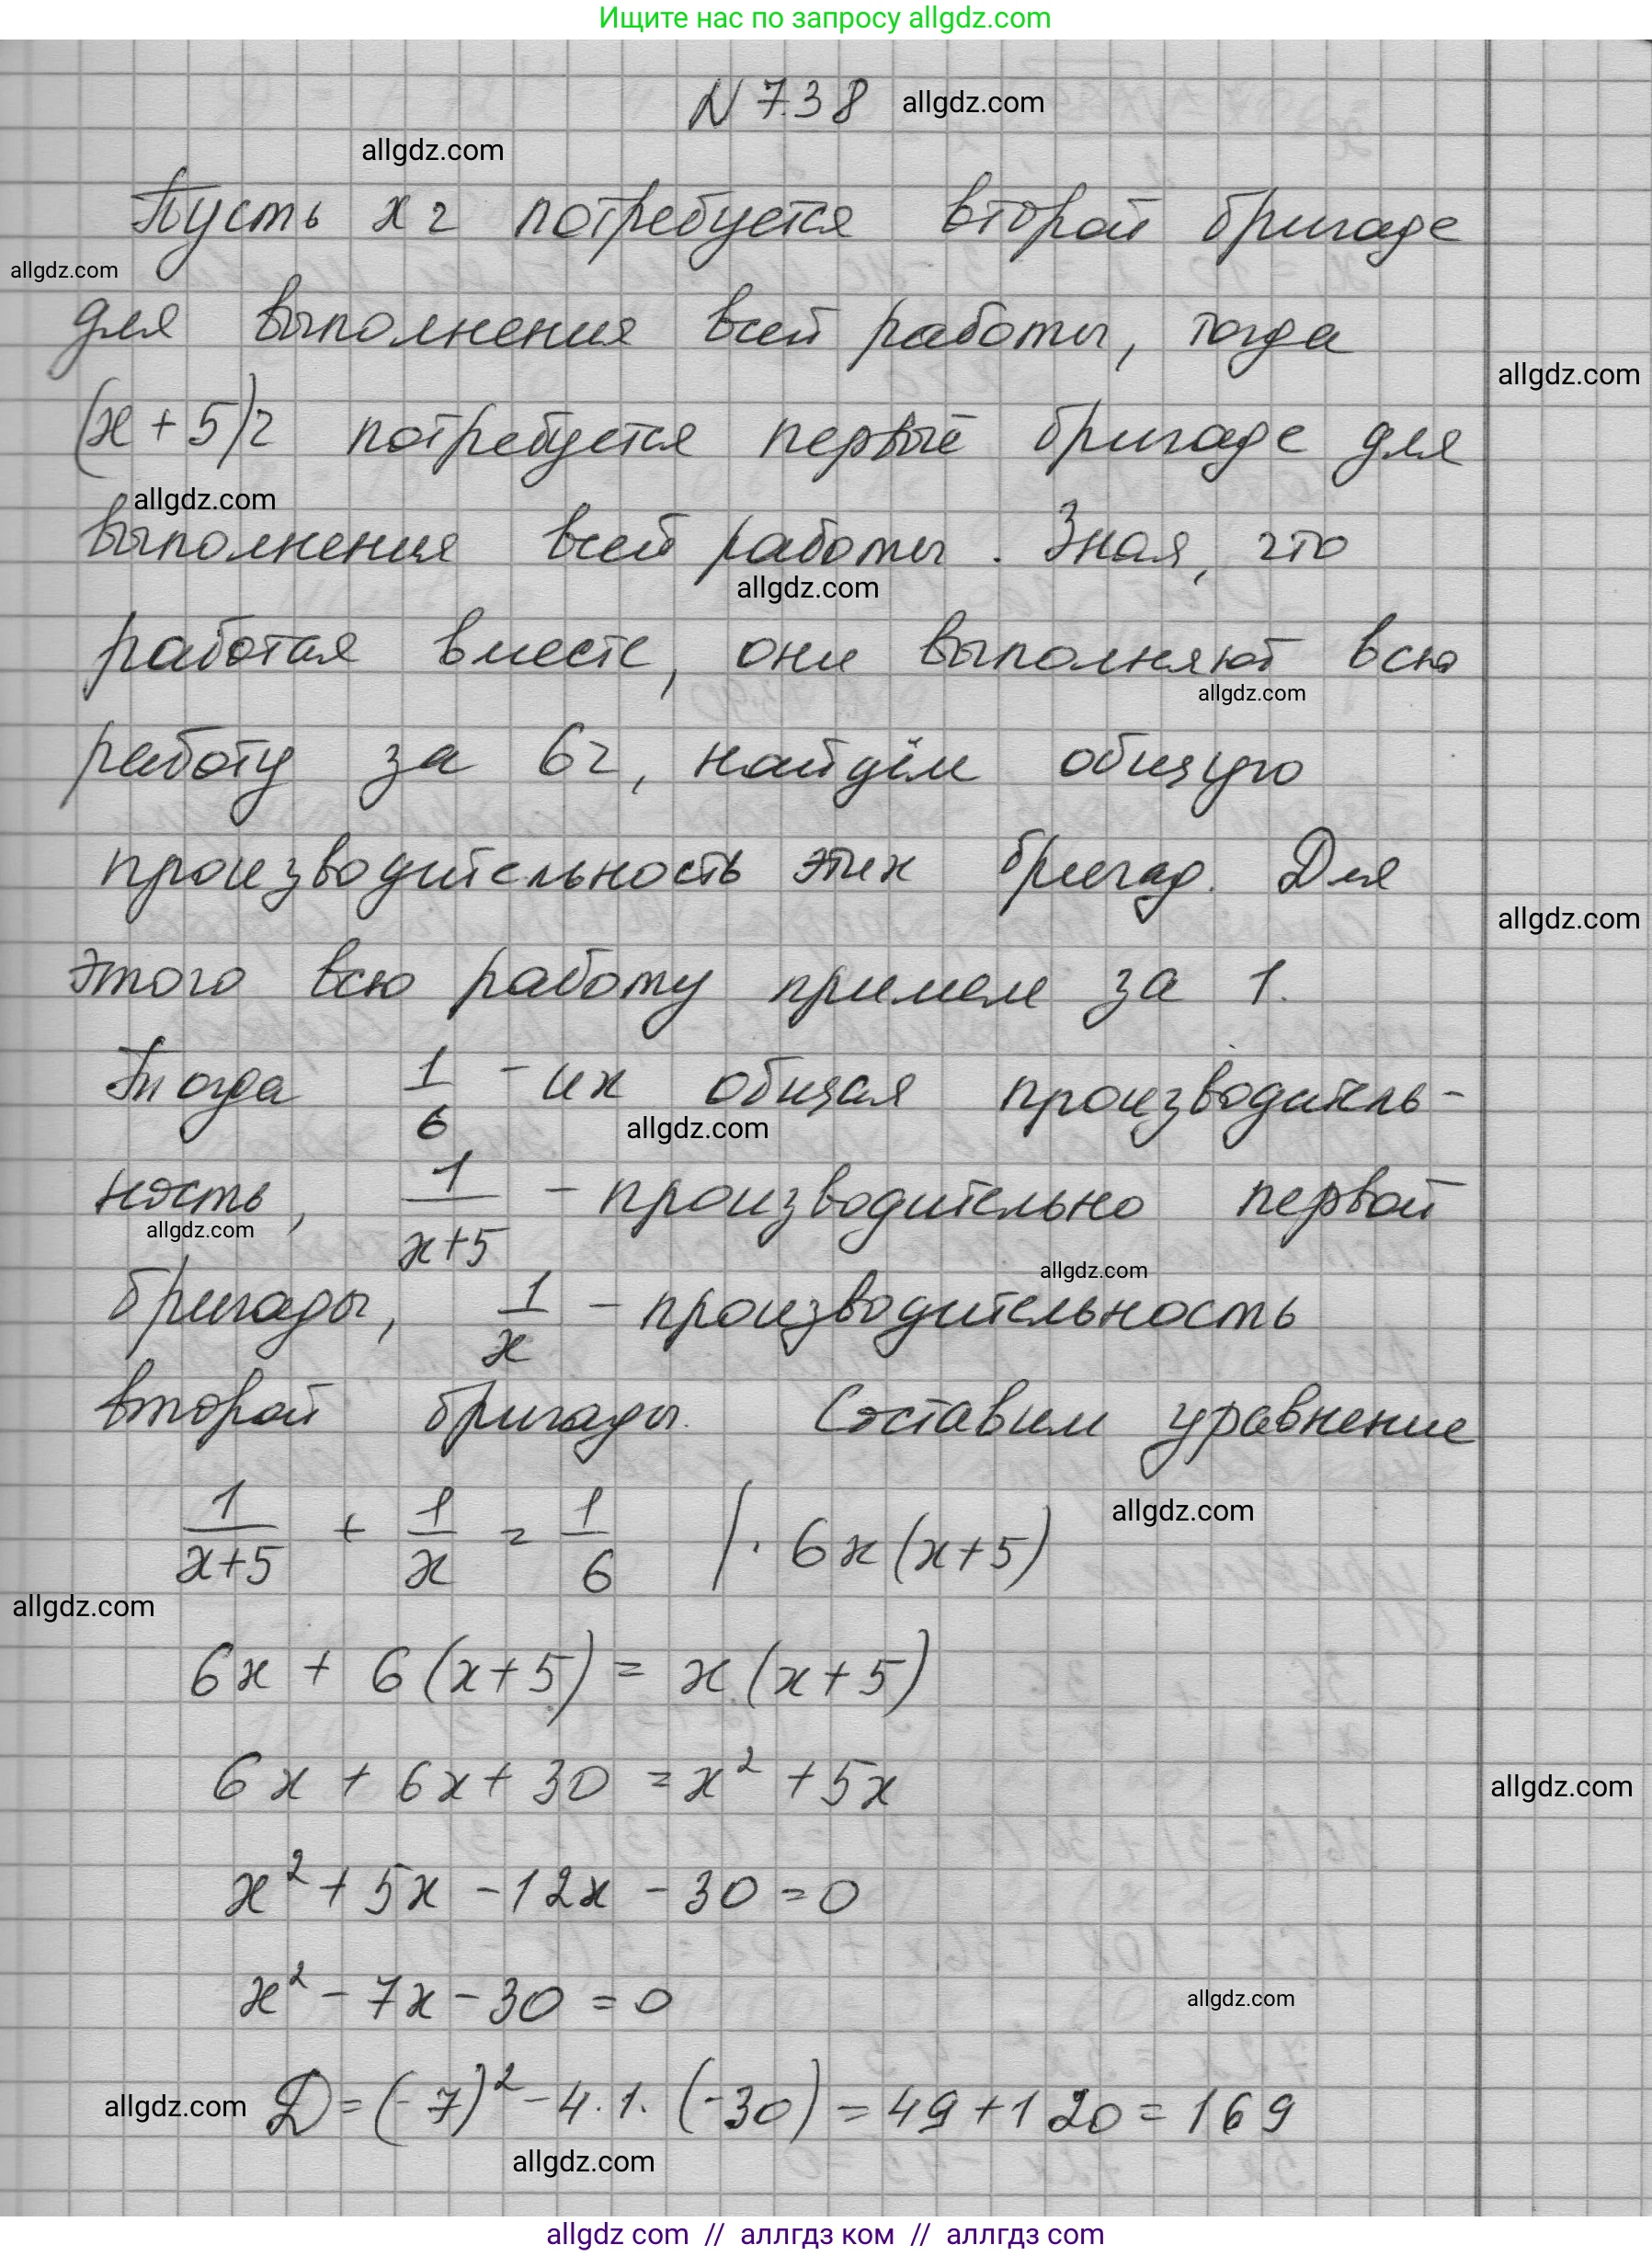 Ищите нас по запросу allgdz.com
N 7.38 allgdz.com
allgdz.com
Пусть x г потребуется второй бригаде
allgdz.com
для выполнения всей работы, тогда
allgdz.com
(x + 5) г потребуется первые бригаде для
allgdz.com
выполнения всей работы. Зная, что
allgdz.com
работая вместе, они выполняют всю
allgdz.com
работу за 6г, найдём общую
производительность этих бригад. Для
allgdz.com
этого всю работу примем за 1.
Тогда 1/6 - их общая производитель-
allgdz.com
ность, 1/(x+5) - производительно первой
allgdz.com
allgdz.com
бригады, 1/x - производительность
второй бригады. Составим уравнение
allgdz.com
1/(x+5) + 1/x = 1/6 | · 6x(x+5)
allgdz.com
6x + 6(x+5) = x(x+5)
6x + 6x + 30 = x² + 5x
allgdz.com
x² + 5x - 12x - 30 = 0
x² - 7x - 30 = 0
allgdz.com
allgdz.com Д = (-7)² - 4·1·(-30) = 49 + 120 = 169
allgdz.com
allgdz com // аллгдз ком // аллгдз com